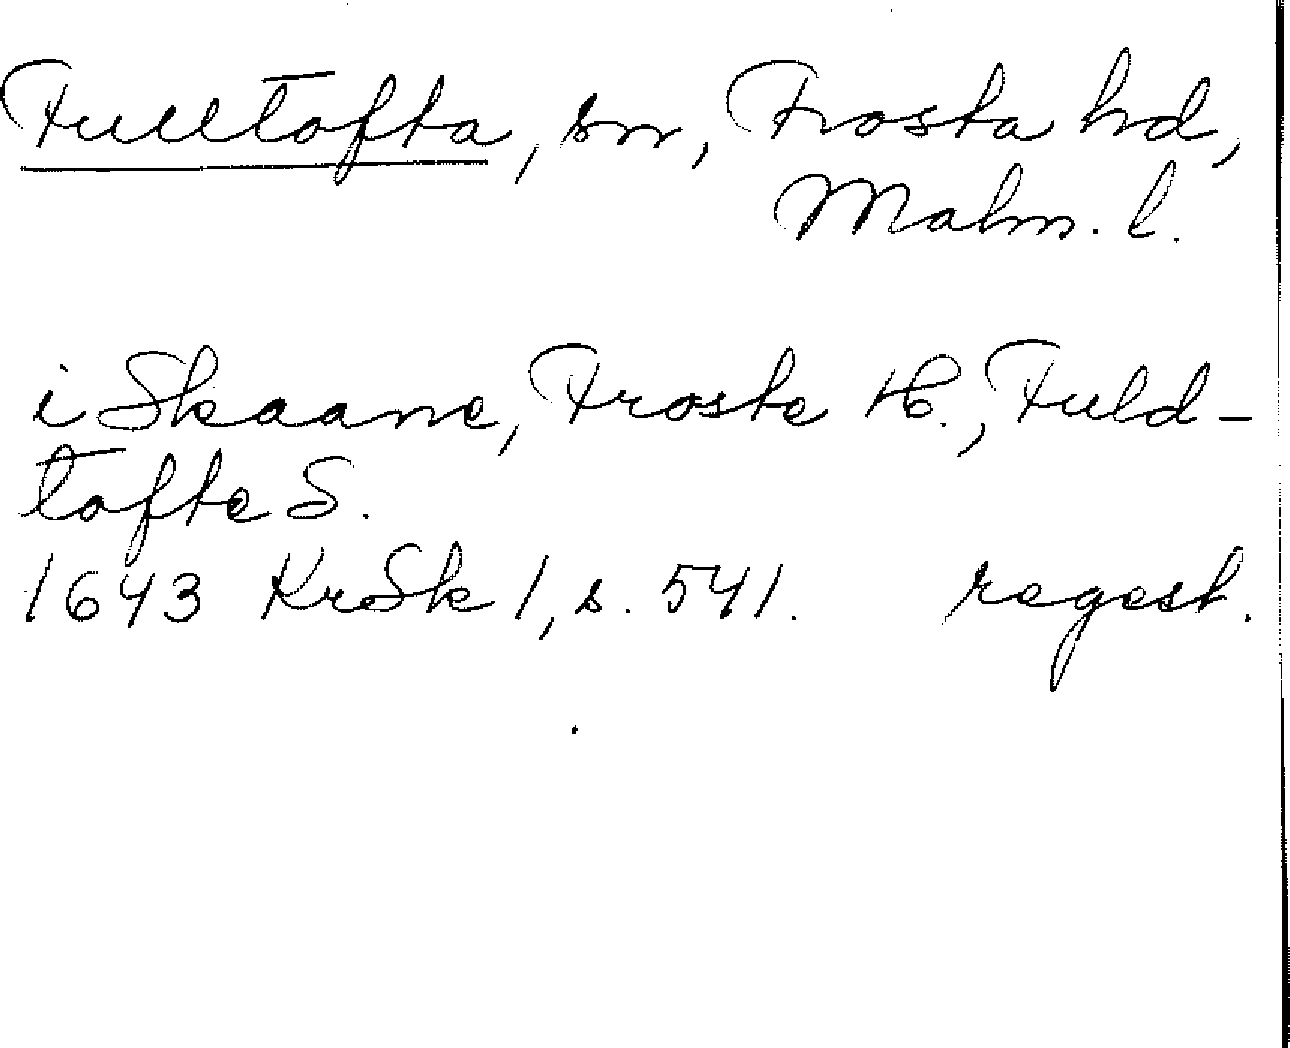 Fulltofta, sn, Frosta hd,
Malm. l.
i Skaane, Froste H., Fuld-
tofte S.
1643 KrSk 1, s. 541. regest.